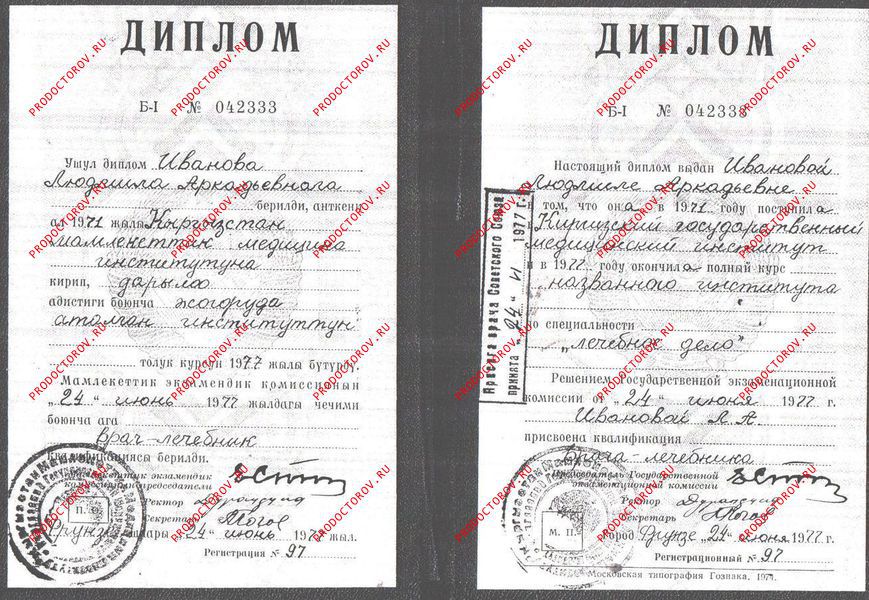 ДИПЛОМ
Б-I № 042333
Ушул диплом Иванова
Людмила Аркадьевнага
берилди, анткени
ал 1971 жылы Кыргызстан
мамлекеттик медицина
институтуна
кирип, дарылоо
адистиги боюнча жогоруда
аталган институттун
толук курсун 1977 жылы бүтүрдү.
Мамлекеттик экзамендик комиссиянын
„24“ июнь 1977 жылдагы чечими
боюнча ага
врач-лечебник
квалификациясы берилди.
Мамлекеттик экзамендик
комиссиянын председатели
Ректор
Секретарь
Фрунзе шаары „24“ июнь 1977 жыл.
Регистрация № 97
М. П.
ДИПЛОМ
Б-I № 042333
Настоящий диплом выдан Ивановой
Людмиле Аркадьевне
в том, что она в 1971 году поступила
в Киргизский государственный
медицинский институт
и в 1977 году окончила полный курс
названного института
по специальности
„лечебное дело“
Решением Государственной экзаменационной
комиссии от „24“ июня 1977 г.
Ивановой Л. А.
присвоена квалификация
врача-лечебника
Председатель Государственной
экзаменационной комиссии
Ректор
Секретарь
Город Фрунзе, 24 июня 1977 г.
Регистрационный № 97
М. П.
Московская типография Гознака. 1971.
Присяга врача Советского Союза
принята „24“ VI 1977 г.
PRODOCTOROV.RU